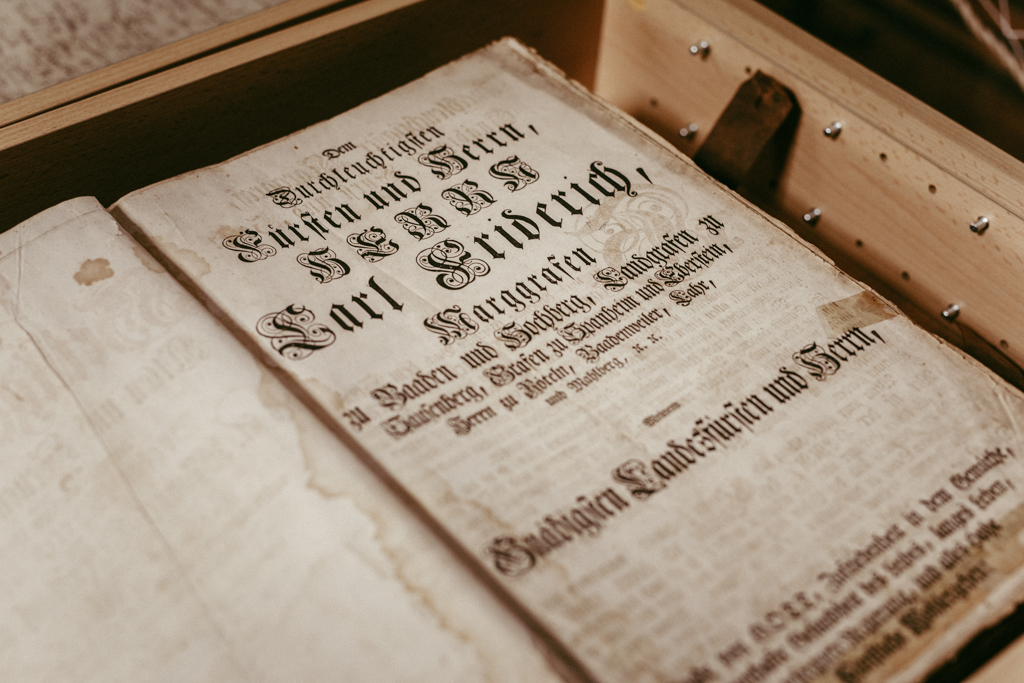 Dem
Durchleuchtigsten
Fürsten und Herrn,
HERRN
Carl Friderich,
Marggrafen
zu Baaden und Hochberg, Landgrafen zu
Sausenberg, Grafen zu Spanheim und Eberstein,
Herrn zu Röteln, Baadenweiler, Lahr,
und Mahlberg, ꝛc. ꝛc.
Meinem
Gnädigsten Landesfürsten und Herrn,
von GOTT, Zufriedenheit in dem Gemüthe,
Gesundheit des Leibes, langes Leben,
Regierung, und alles hohe